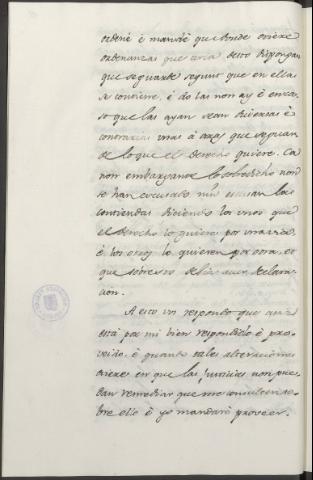 ordené é mandé que donde oviere
ordenanzas que cerca desto dispongan
que se guarde segunt que en ellas
se contiene, é do tal non ay é en ca-
so que las ayan sean diversas é
contrarias unas á otras que se guar-
de lo que el derecho quiere. Ca
non embargante lo sobredicho non
se han escusado, nin escusan las
contiendas diciendo los unos que
el derecho lo quiere por una via,
é los otros lo quieren por otra, et
que sobre eso debia aver declara-
cion.
A esto vos respondo que asaz
está por mi bien respondido é pro-
veido, é quando tales altercaciones
oviere en que las Justicias non pue-
dan remediar que me consulten so-
bre ello é yo mandaré proveer.